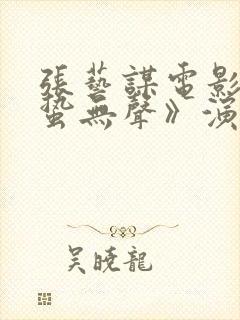 張藝謀電影
蟄無聲》演
吳曉龍